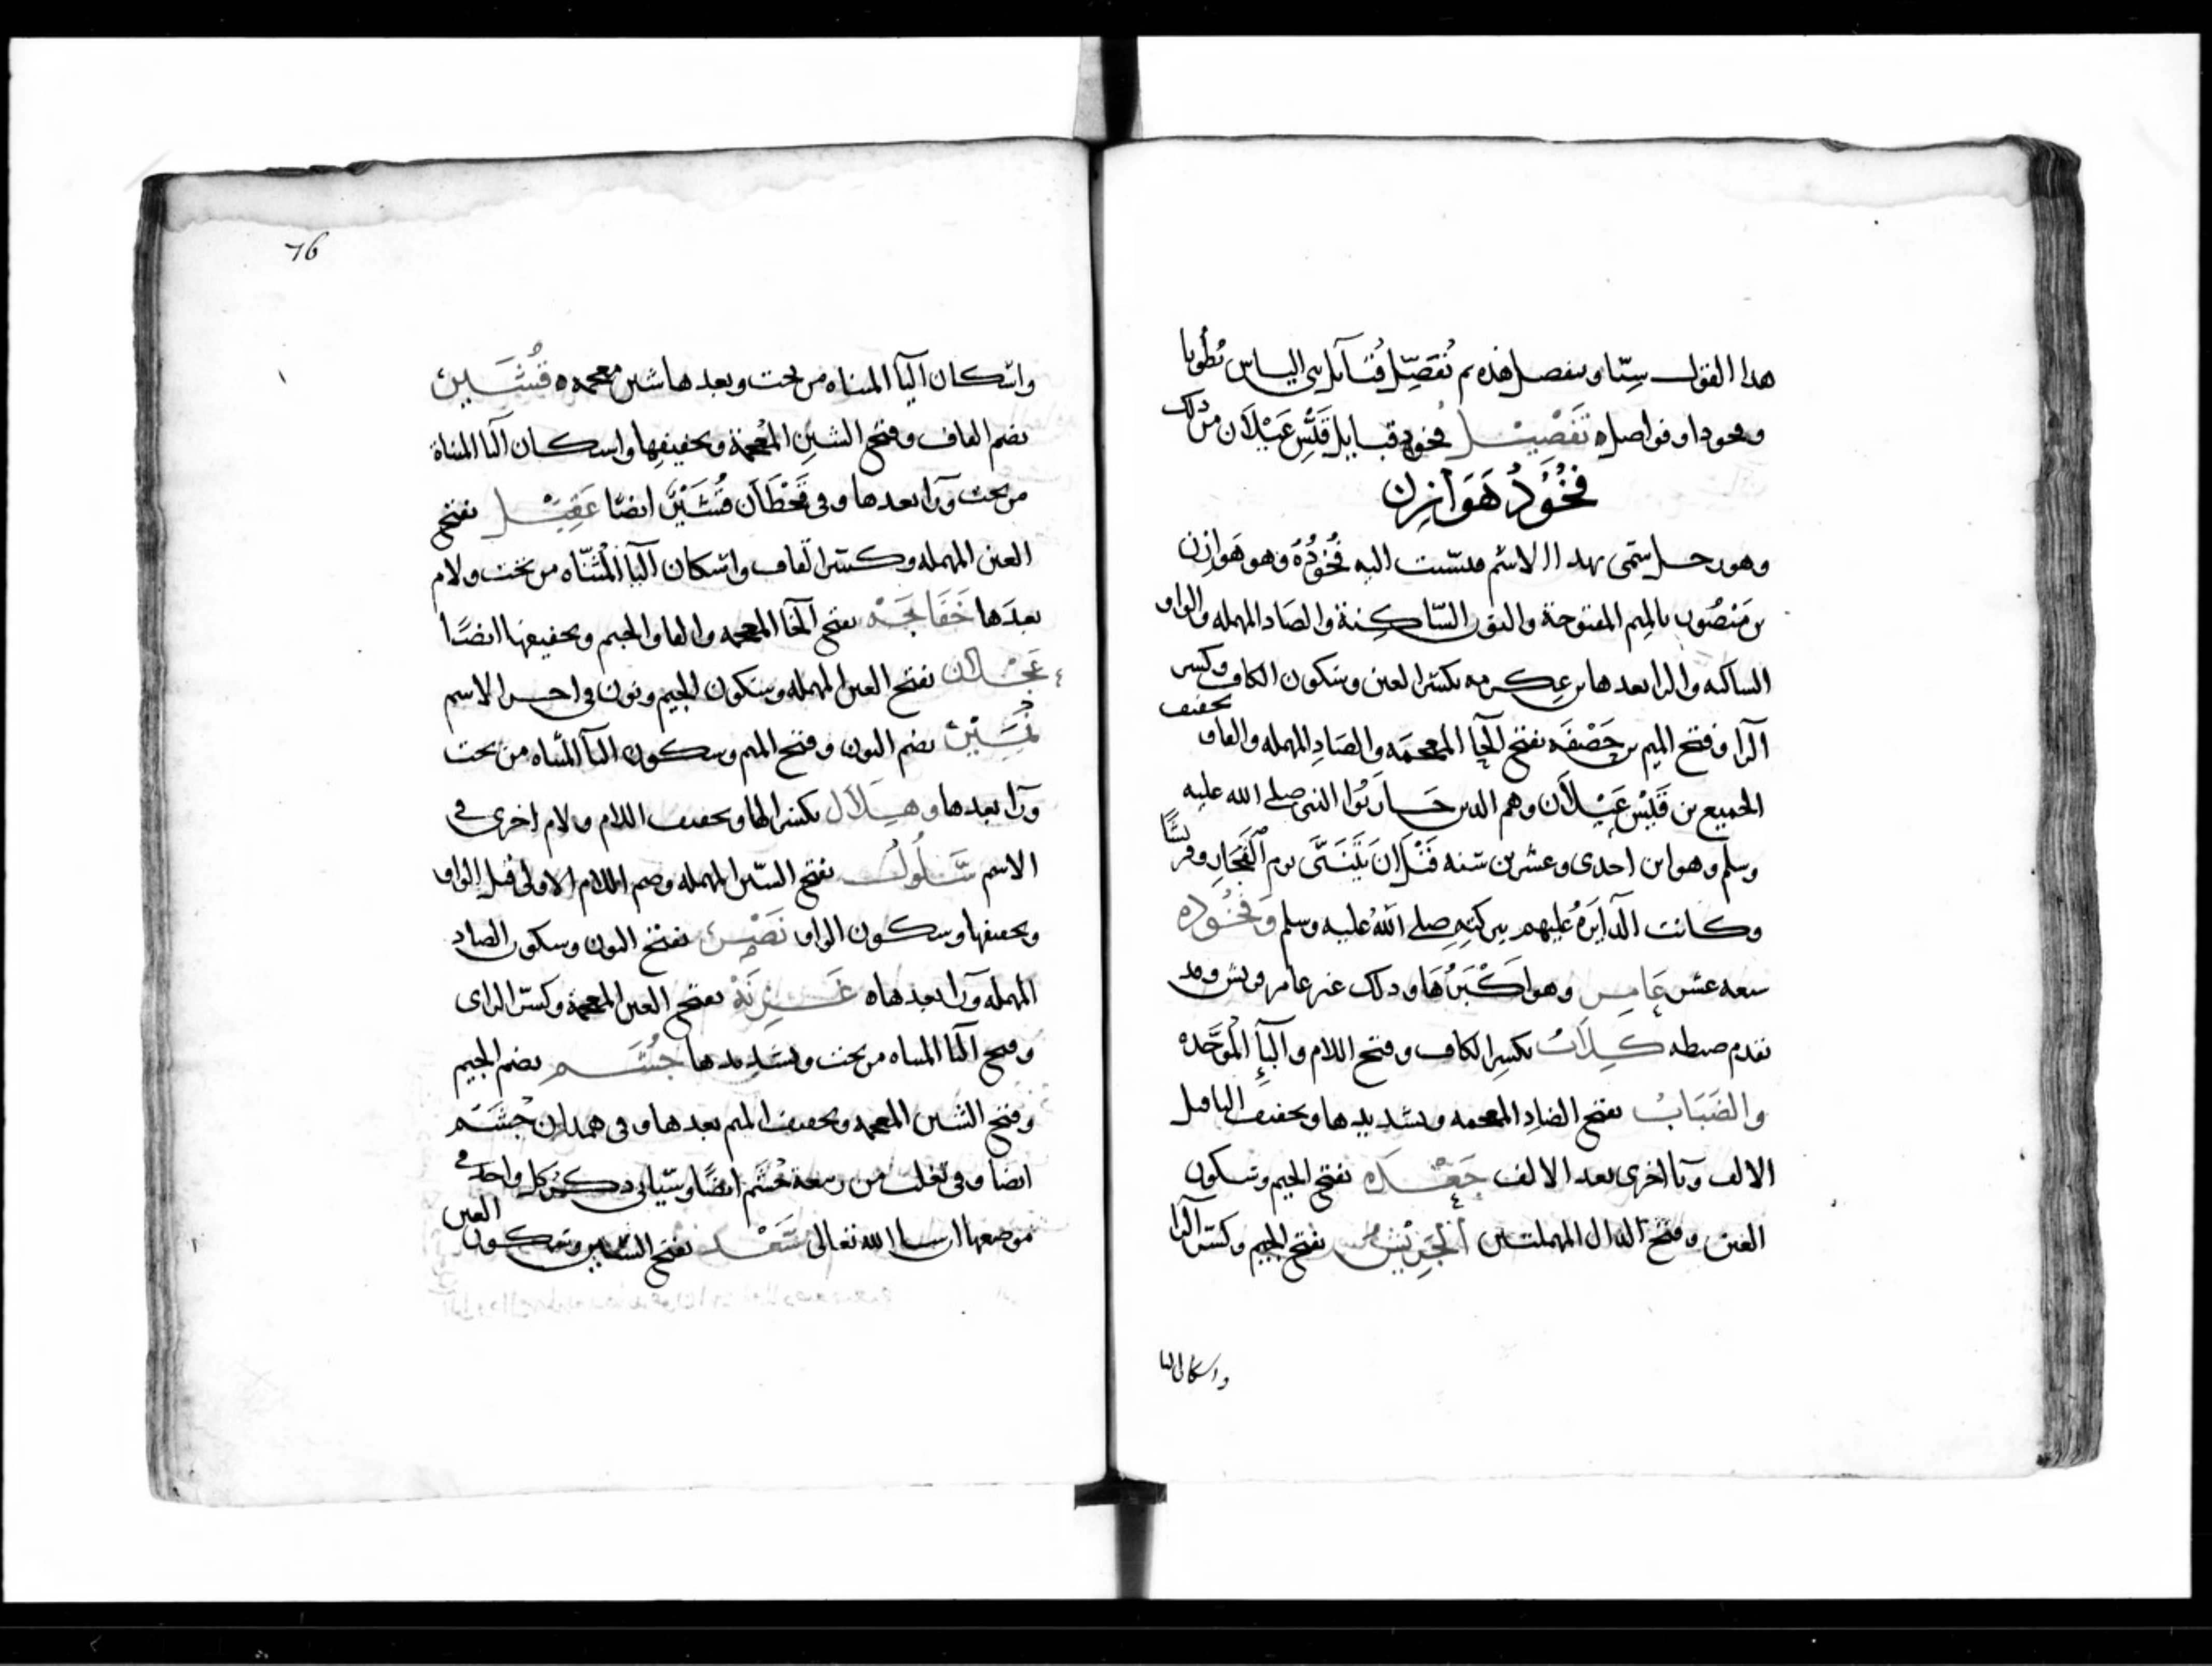 هذا القول ستا وسفصل هذه ثم نفصل قبائل بني الياس بطونا
وفخودا وفواصل تفصيل فخود قبايل قيس عيلان من ذلك
فخود هوازن
وهو رجل سمى بهذا الاسم فنسبت اليه فخوده وهو هوازن
بن منصور بالميم المفتوحة والنون الساكنة والصاد المهمله والواو
الساكنه والرا بعدها بن عكرمه بكسر العين وسكون الكاف وكسر
الرا وفتح الميم بن خصفه بفتح الخا المعجمه والصاد المهمله والفاء تخفيف
الجميع بن قيس عيلان وهم الذين حاربوا النبي صلى الله عليه
وسلم وهو ابن احدى وعشرين سنه قبل ان يتنبى يوم الفجار وقريشا
وكانت الدايرة عليهم ببركته صلى الله عليه وسلم وفخوده
سبعه عشر عامر وهو اكبرها وذلك غير عامر قريش وقد
تقدم ضبطه كلاب بكسر الكاف وفتح اللام والبا الموحده
والضباب بفتح الضاد المعجمه وتشديدها وتخفيف البا قبل
الالف وبا اخرى بعد الالف جعده بفتح الجيم وسكون
العين وفتح الدال المهملتين الحريش بفتح الجيم وكسر الرا
واسكان اليا
76
واسكان اليا المثناه من تحت وبعدها شين معجمه قشير
بضم القاف وفتح الشين المعجمة وتخفيفها واسكان اليا المثناة
من تحت ورا بعدها وفي قحطان قشير ايضا عقيل بفتح
العين المهمله وكسر القاف واسكان اليا المثناه من تحت ولام
بعدها خفاجه بفتح الخا المعجمه والفا والجيم وتخفيفها ايضا
عجلان بفتح العين المهمله وسكون الجيم ونون في اخر الاسم
نمير بضم النون وفتح الميم وسكون اليا المثناه من تحت
ورا بعدها وهلال بكسر الها وتخفيف اللام ولام اخرى في
الاسم سلول بفتح السين المهمله وضم اللام الاولى قبل الواو
وتخفيفها وسكون الواو نصر بفتح النون وسكون الصاد
المهمله ورا بعدها غزية بفتح الغين المعجمة وكسر الزاى
وفتح اليا المثناه من تحت وتشديدها جشم بضم الجيم
وفتح الشين المعجمه وتخفيف الميم بعدها وفي همدان جشم
ايضا وفي تغلب من ربيعة جشم ايضا وسياتى ذكر كل واحد في
موضعها ان شا الله تعالى سعد بفتح السين وسكون العين